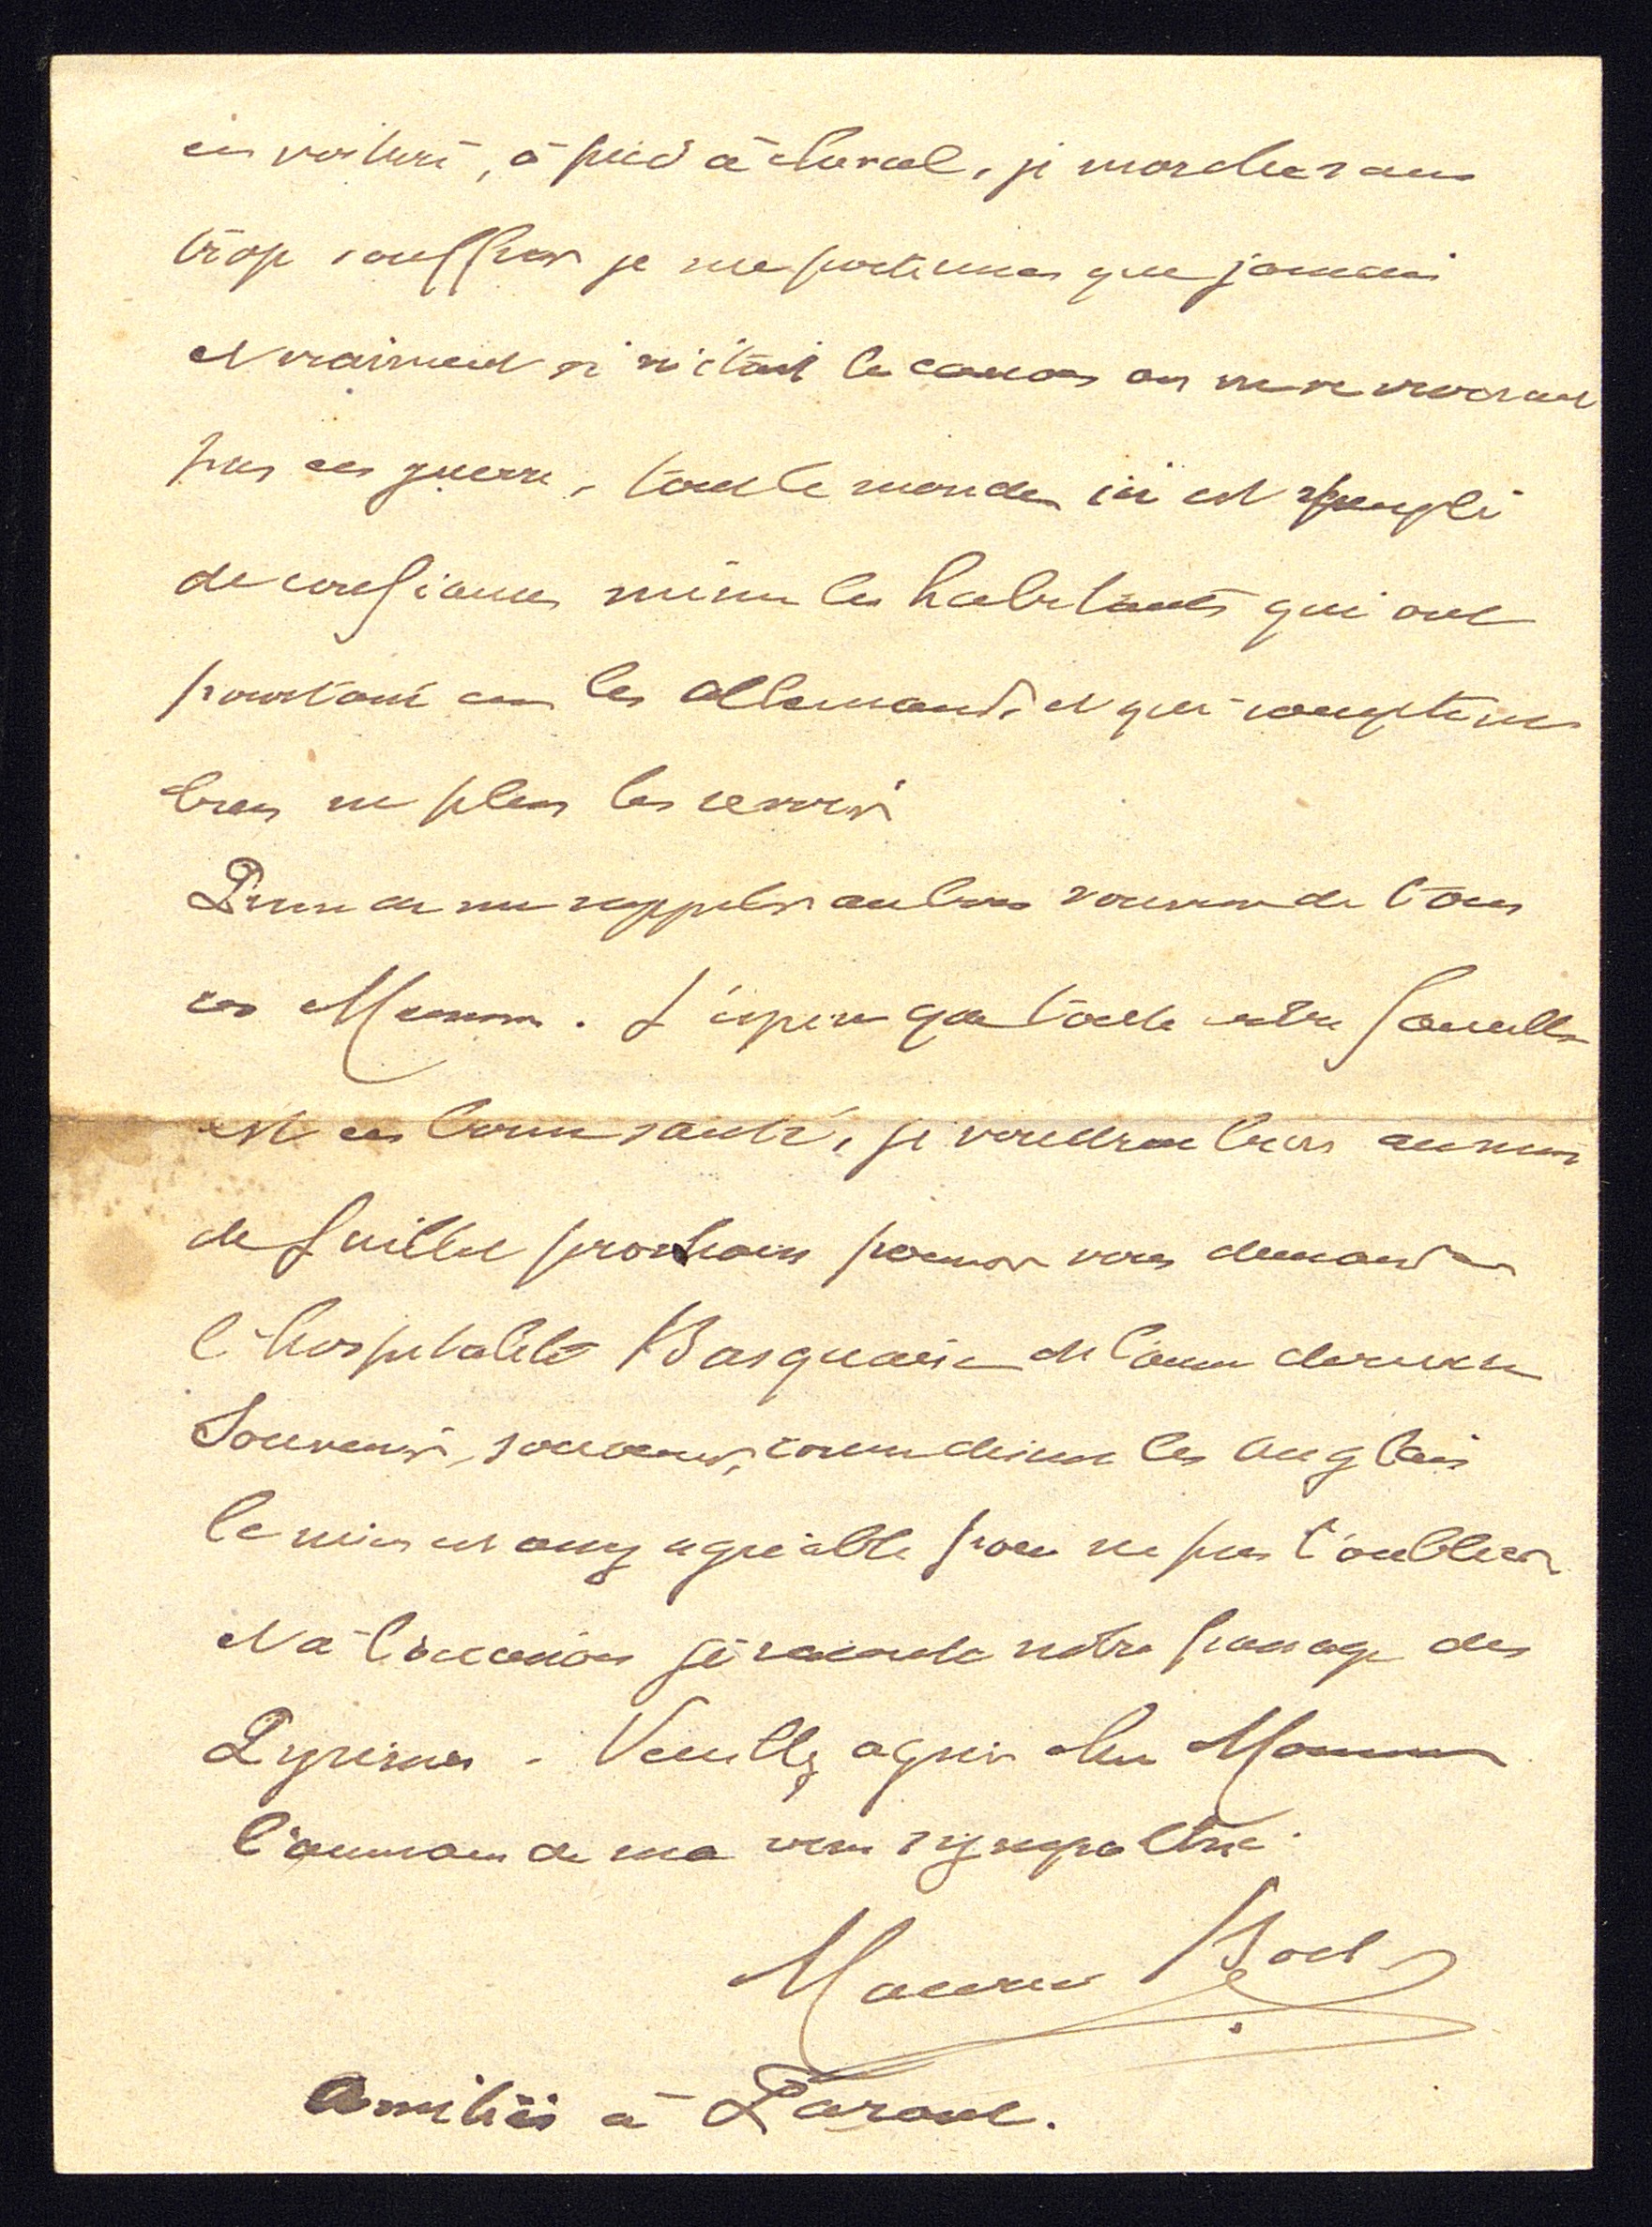 en voiture, à pied à cheval, je marche sans
trop souffrir je me porte mieux que jamais
et vraiment si n'était le canon on ne se croirait
pas en guerre, tout le monde ici est rempli
de confiance même les habitants qui ont
pourtant eu les Allemands et qui comptent
bien ne plus les revoir
Prière de me rappeler au bon souvenir de tous
ces Messieurs. J'espère que toute votre famille
est en bonne santé, je voudrais bien au mois
de Juillet prochain pouvoir vous demander
l'hospitalité Basquaise de l'année dernière
Souvenir, souvenir, comme disent les Anglais
le mien est assez agréable pour ne pas l'oublier
et à l'occasion je raconte notre passage des
Pyrénées. Veuillez agréer cher Monsieur
l'assurance de ma vive sympathie.
Maurice
Amitiés à